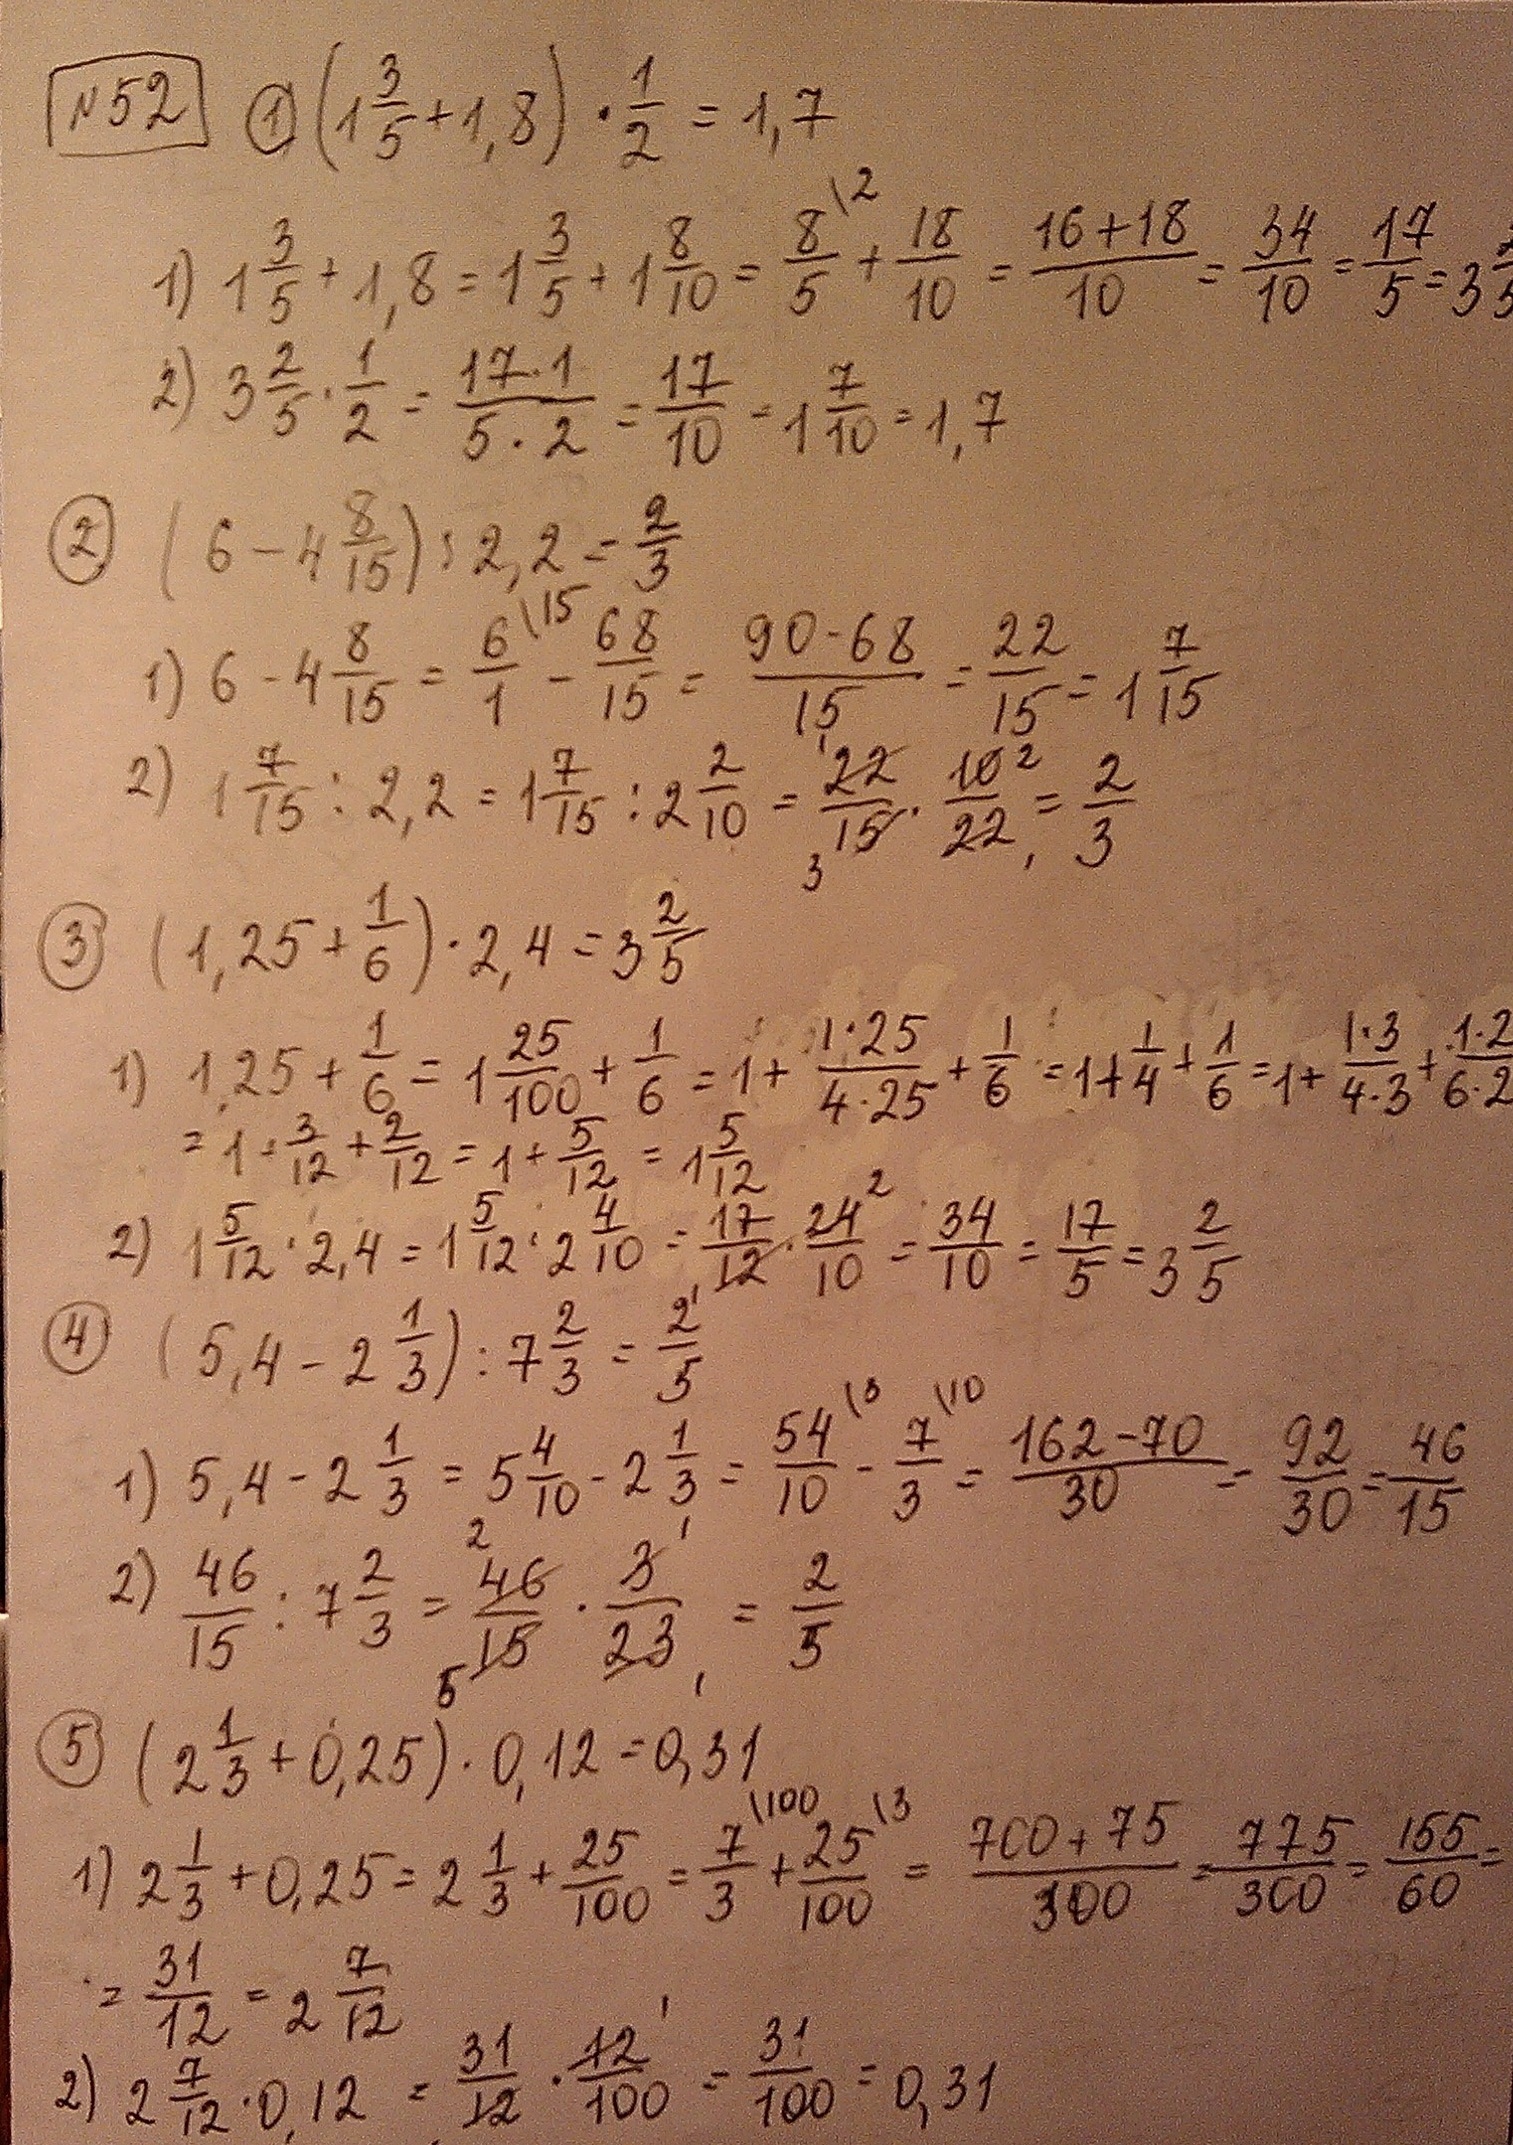 №52 ① (1 3/5 + 1,8) · 1/2 = 1,7
1) 1 3/5 + 1,8 = 1 3/5 + 1 8/10 = 8/5 \2 + 18/10 = (16+18)/10 = 34/10 = 17/5 = 3 2/5
2) 3 2/5 · 1/2 = (17·1)/(5·2) = 17/10 = 1 7/10 = 1,7
② (6 − 4 8/15) : 2,2 = 2/3
1) 6 − 4 8/15 = 6/1 \15 − 68/15 = (90−68)/15 = 22/15 = 1 7/15
2) 1 7/15 : 2,2 = 1 7/15 : 2 2/10 = 22/15 · 10/22 = 2/3
③ (1,25 + 1/6) · 2,4 = 3 2/5
1) 1,25 + 1/6 = 1 25/100 + 1/6 = 1 + (1·25)/(4·25) + 1/6 = 1 + 1/4 + 1/6 = 1 + (1·3)/(4·3) + (1·2)/(6·2)
= 1 + 3/12 + 2/12 = 1 + 5/12 = 1 5/12
2) 1 5/12 · 2,4 = 1 5/12 · 2 4/10 = 17/12 · 24/10 = 34/10 = 17/5 = 3 2/5
④ (5,4 − 2 1/3) : 7 2/3 = 2/5
1) 5,4 − 2 1/3 = 5 4/10 − 2 1/3 = 54/10 \3 − 7/3 \10 = (162−70)/30 = 92/30 = 46/15
2) 46/15 : 7 2/3 = 46/15 · 3/23 = 2/5
⑤ (2 1/3 + 0,25) · 0,12 = 0,31
1) 2 1/3 + 0,25 = 2 1/3 + 25/100 = 7/3 \100 + 25/100 \3 = (700+75)/300 = 775/300 = 155/60 =
= 31/12 = 2 7/12
2) 2 7/12 · 0,12 = 31/12 · 12/100 = 31/100 = 0,31